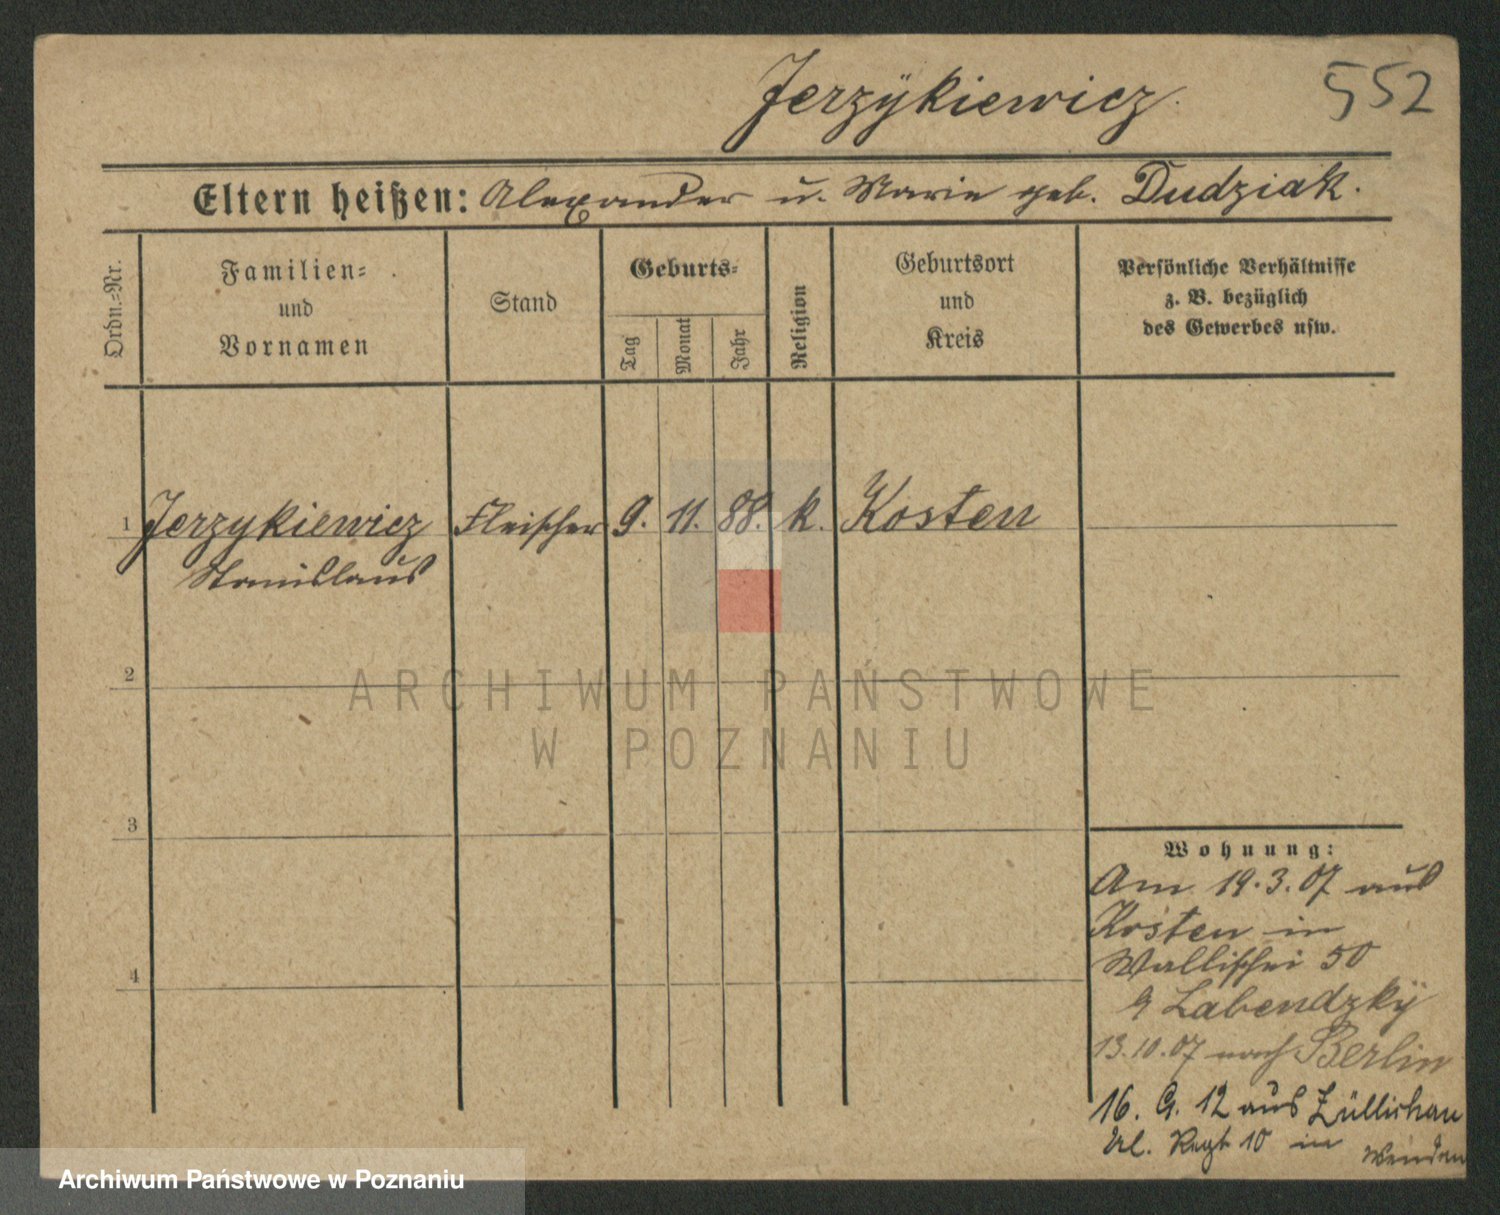 Jerzÿkiewicz.
552
Eltern heißen: Alexander u. Marie geb. Dudziak.
Ordn.=Nr.
Familien=
und
Vornamen
Stand
Geburts=
Tag
Monat
Jahr
Religion
Geburtsort
und
Kreis
Persönliche Verhältnisse
z. B. bezüglich
des Gewerbes usw.
1 Jerzykiewicz Fleischer 9. 11. 88. k. Kosten
Stanislaus
2
ARCHIWUM PAŃSTWOWE
W POZNANIU
3
Wohnung:
Am 19.3.07 aus
Kosten in
Wallischei 50
Labendzkÿ
4
13.10.07 nach Berlin
16. 9. 12 aus Züllichau
Ul. Regt 10 in
Archiwum Państwowe w Poznaniu